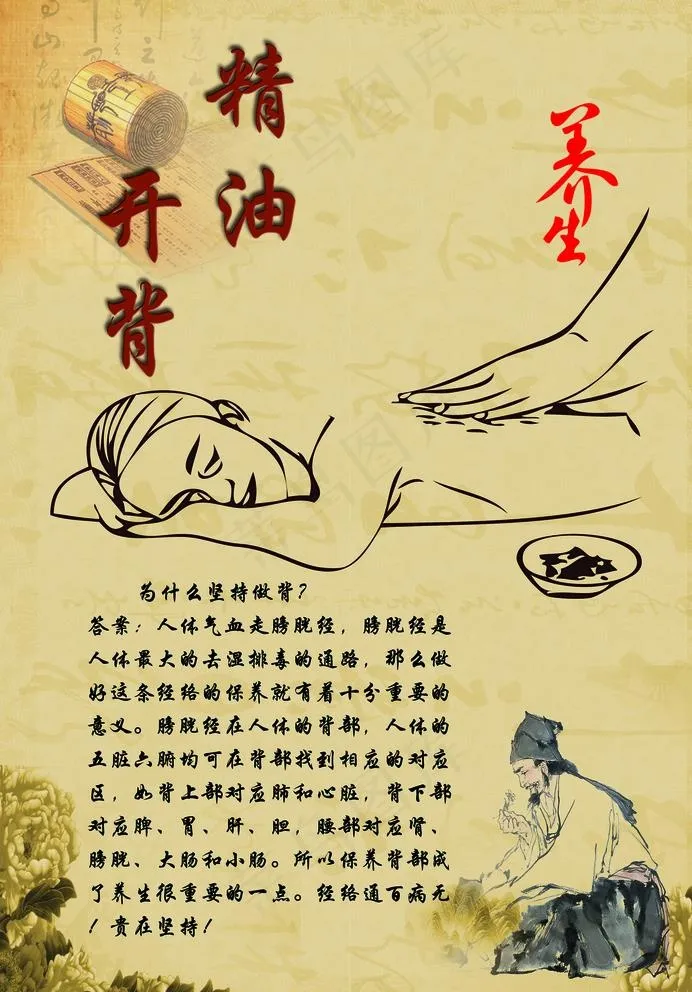 精油
开背
养生
为什么坚持做背？
答案：人体气血走膀胱经，膀胱经是
人体最大的去湿排毒的通路，那么做
好这条经络的保养就有着十分重要的
意义。膀胱经在人体的背部，人体的
五脏六腑均可在背部找到相应的对应
区，如背上部对应肺和心脏，背下部
对应脾、胃、肝、胆，腰部对应肾、
膀胱、大肠和小肠。所以保养背部成
了养生很重要的一点。经络通百病无
！贵在坚持！